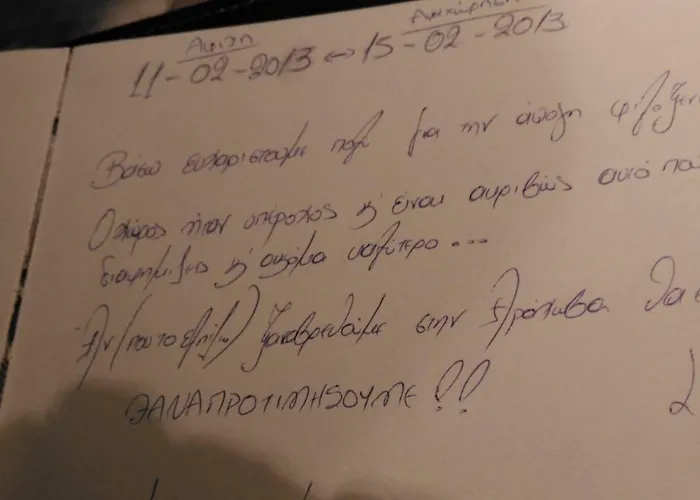 Άφιξη Αναχώρηση
11-02-2013 ↔ 15-02-2013
Βάσω ευχαριστούμε πολύ για την άψογη φιλοξεν
Ο χώρος ήταν υπέροχος κ' είναι ακριβώς αυτό που
διαφημίζεις κ' ακόμα καλύτερο...
Αν (που το ελπίζω) ξαναβρεθούμε στην Αράχωβα θα σ
ΞΑΝΑΠΡΟΤΙΜΗΣΟΥΜΕ!!